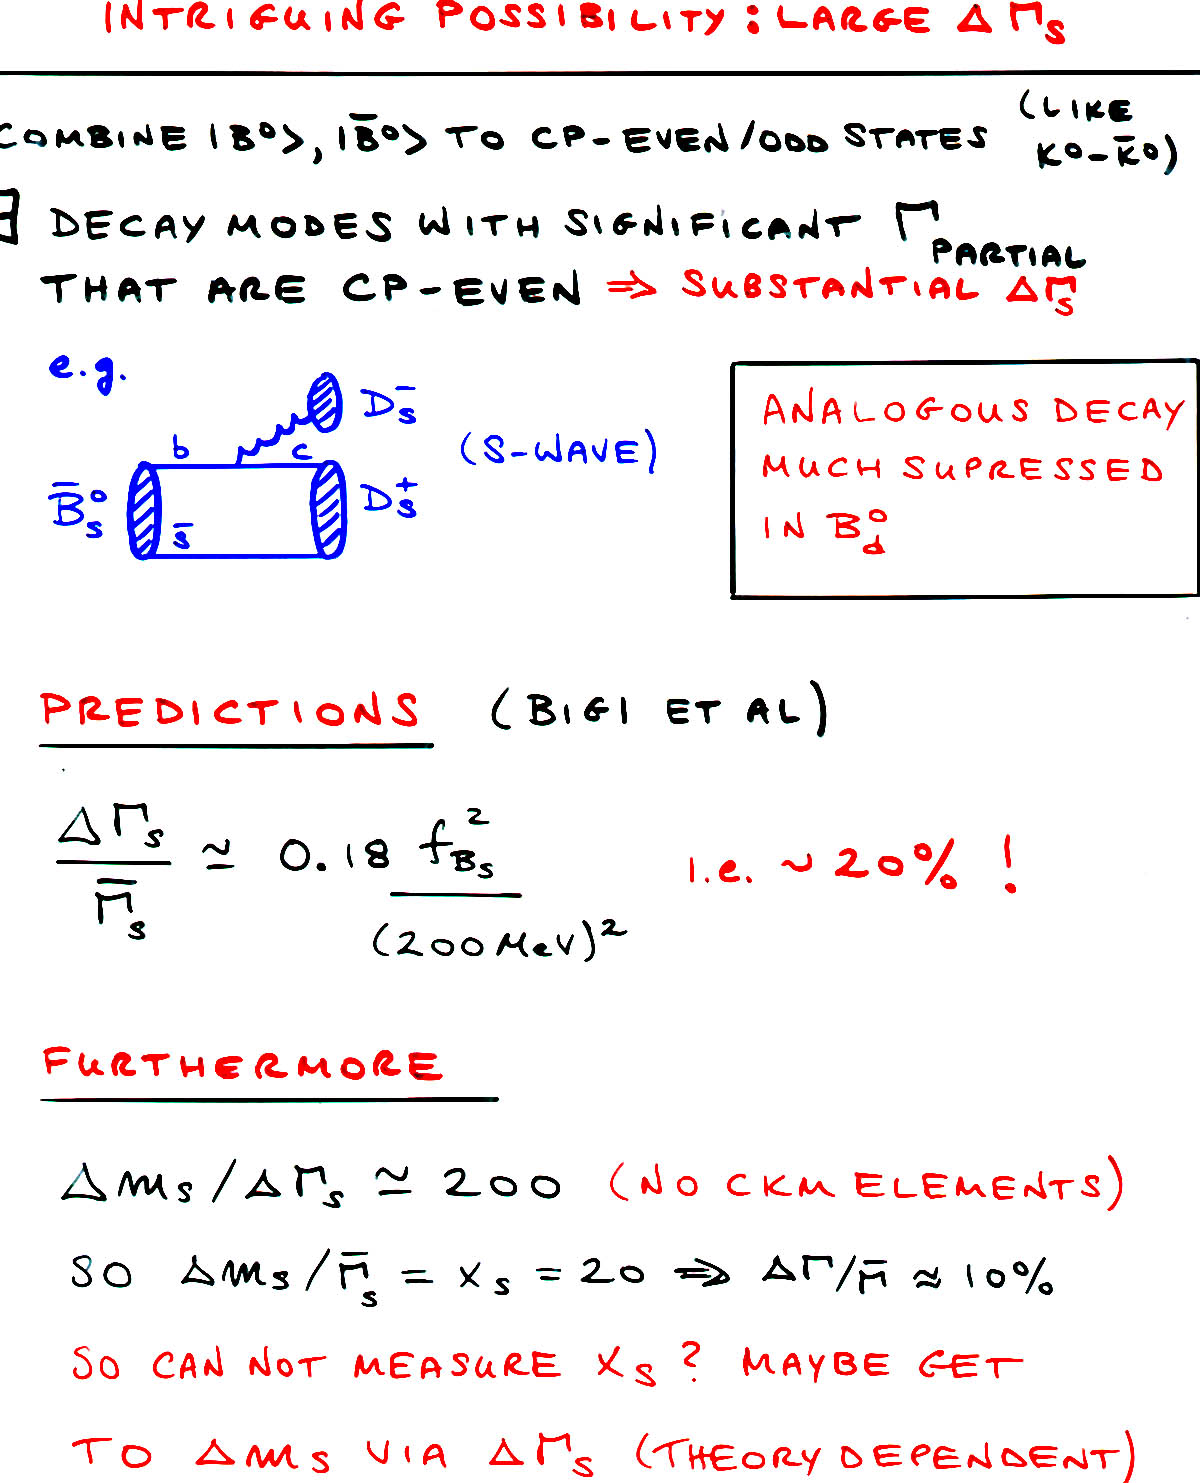 INTRIGUING POSSIBILITY: LARGE ΔΓs
COMBINE |B⁰>, |B̄⁰> TO CP-EVEN/ODD STATES (LIKE K⁰-K̄⁰)
∃ DECAY MODES WITH SIGNIFICANT Γ PARTIAL
THAT ARE CP-EVEN ⇒ SUBSTANTIAL ΔΓs
e.g.
b c Ds⁻
B̄s⁰ s̄ Ds⁺
(S-WAVE)
ANALOGOUS DECAY
MUCH SUPRESSED
IN Bd⁰
PREDICTIONS (BIGI ET AL)
ΔΓs / Γ̄s ≃ 0.18 f²Bs / (200 MeV)² i.e. ~ 20% !
FURTHERMORE
Δms/ΔΓs ≃ 200 (NO CKM ELEMENTS)
SO Δms/Γ̄s = xs = 20 ⇒ ΔΓ/Γ̄ ≈ 10%
SO CAN NOT MEASURE Xs? MAYBE GET
TO Δms VIA ΔΓs (THEORY DEPENDENT)